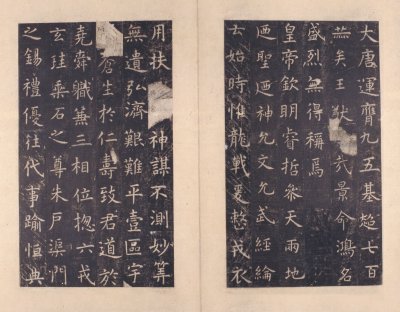 大唐運膺九五基超七百
赫矣王猷景命鴻名
盛烈無得稱焉
皇帝欽明睿哲參天兩地
廼聖廼神允文允武經綸
云始時惟龍戰爰整戎衣
用扶神謀不測妙筭
無遺弘濟艱難平壹區宇
蒼生於仁壽致君道於
堯舜職兼三相位摠六戎
玄珪乘石之尊朱戶渠門
之錫禮優往代事踰恒典